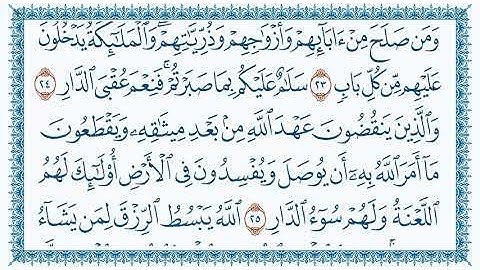 وَمَن صَلَحَ مِنْ ءَابَآئِهِمْ وَأَزْوَٰجِهِمْ وَذُرِّيَّٰتِهِمْ ۖ وَٱلْمَلَٰٓئِكَةُ يَدْخُلُونَ
عَلَيْهِم مِّن كُلِّ بَابٍ ٢٣ سَلَٰمٌ عَلَيْكُم بِمَا صَبَرْتُمْ ۚ فَنِعْمَ عُقْبَى ٱلدَّارِ ٢٤
وَٱلَّذِينَ يَنقُضُونَ عَهْدَ ٱللَّهِ مِنۢ بَعْدِ مِيثَٰقِهِۦ وَيَقْطَعُونَ
مَآ أَمَرَ ٱللَّهُ بِهِۦٓ أَن يُوصَلَ وَيُفْسِدُونَ فِى ٱلْأَرْضِ ۙ أُو۟لَٰٓئِكَ لَهُمُ
ٱللَّعْنَةُ وَلَهُمْ سُوٓءُ ٱلدَّارِ ٢٥ ٱللَّهُ يَبْسُطُ ٱلرِّزْقَ لِمَن يَشَآءُ